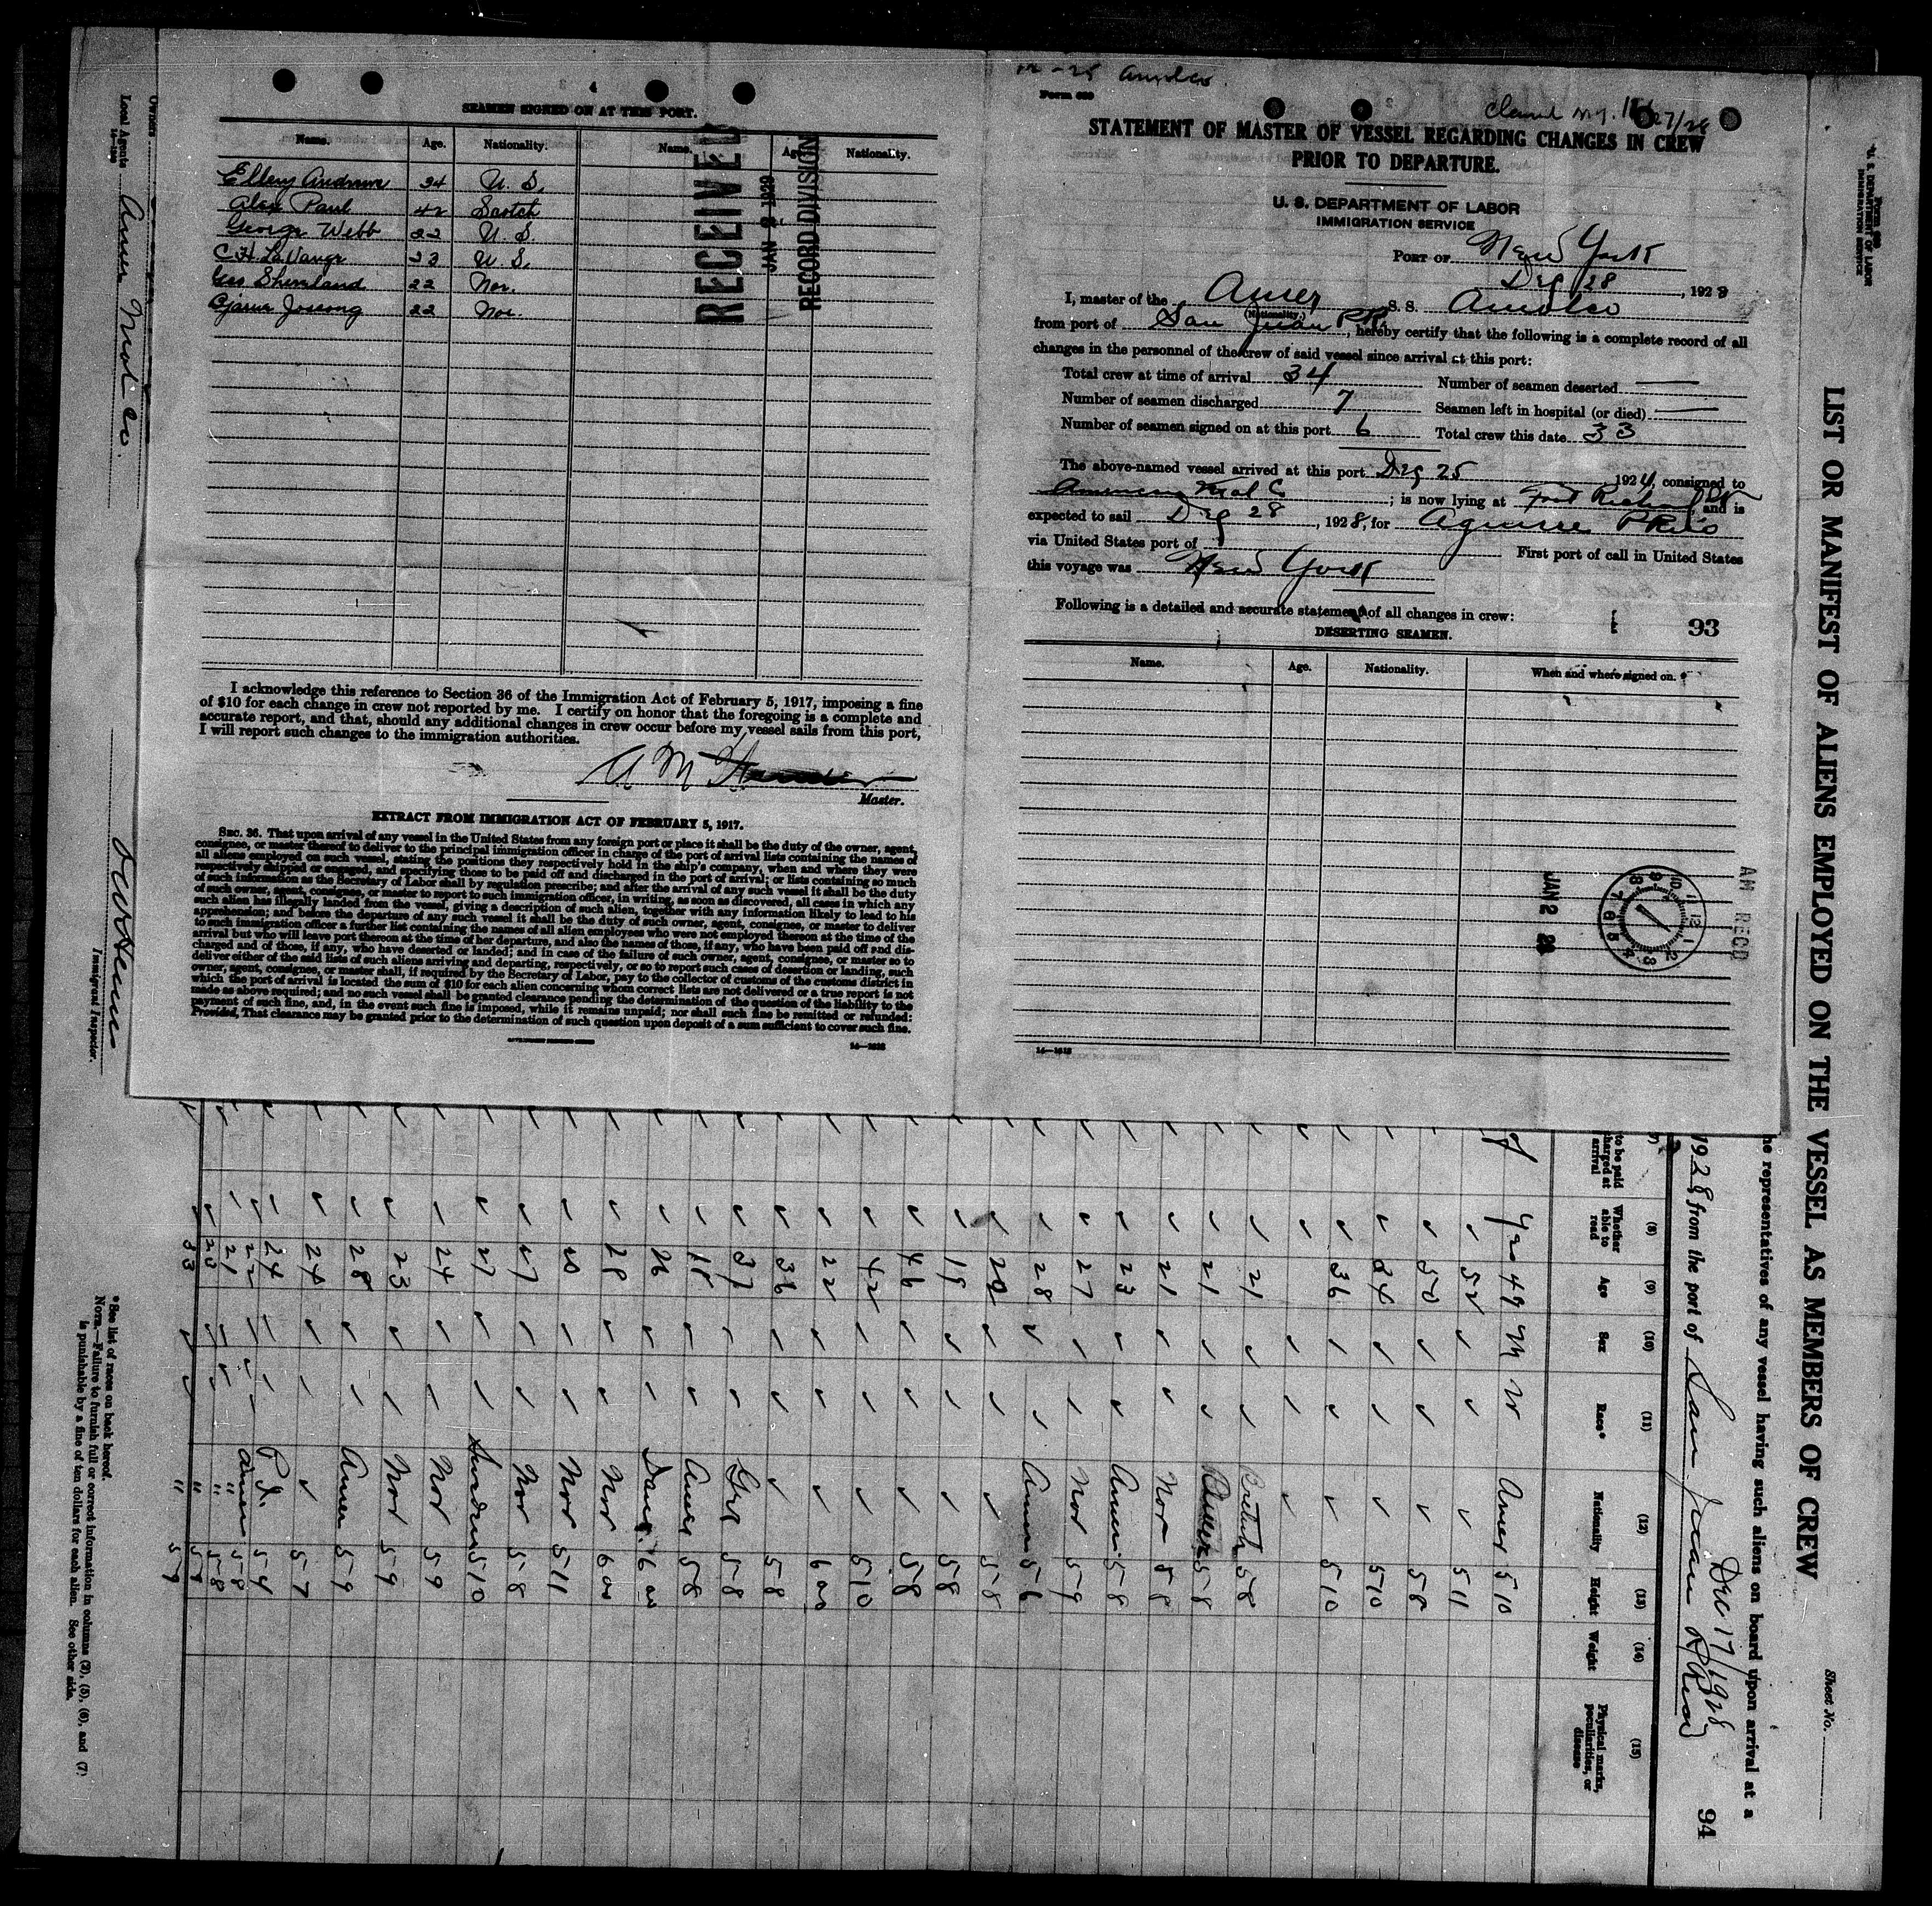 SEAMEN SIGNED ON AT THIS PORT.
Name. Age. Nationality. Name. Age. Nationality.
Ellery 34 U. S.
Alex Paul 42 Scotch
George Webb 22 U. S.
C H 23 U. S.
Geo 22 Nor.
22 Nor.
RECEIVED
JAN 2 1929
RECORD DIVISION
I acknowledge this reference to Section 36 of the Immigration Act of February 5, 1917, imposing a fine
of $10 for each change in crew not reported by me. I certify on honor that the foregoing is a complete and
accurate report, and that, should any additional changes in crew occur before my vessel sails from this port,
I will report such changes to the immigration authorities.
A M
Master.
EXTRACT FROM IMMIGRATION ACT OF FEBRUARY 5, 1917.
SEC. 36. That upon arrival of any vessel in the United States from any foreign port or place it shall be the duty of the owner, agent,
consignee, or master thereof to deliver to the principal immigration officer in charge of the port of arrival lists containing the names of
all aliens employed on such vessel, stating the positions they respectively hold in the ship's company, when and where they were
respectively shipped or engaged, and specifying those to be paid off and discharged in the port of arrival; or lists containing so much
of such information as the Secretary of Labor shall by regulation prescribe; and after the arrival of any such vessel it shall be the duty
of such owner, agent, consignee, or master to report to such immigration officer, in writing, as soon as discovered, all cases in which any
such alien has illegally landed from the vessel, giving a description of such alien, together with any information likely to lead to his
apprehension; and before the departure of any such vessel it shall be the duty of such owner, agent, consignee, or master to deliver
to such immigration officer a further list containing the names of all alien employees who were not employed thereon at the time of the
arrival but who will leave port thereon at the time of her departure, and also the names of those, if any, who have been paid off and dis-
charged and of those, if any, who have deserted or landed; and in case of the failure of such owner, agent, consignee, or master so to
deliver either of the said lists of such aliens arriving and departing, respectively, or so to report such cases of desertion or landing, such
owner, agent, consignee, or master shall, if required by the Secretary of Labor, pay to the collector of customs of the customs district in
which the port of arrival is located the sum of $10 for each alien concerning whom correct lists are not delivered or a true report is not
made as above required; and no such vessel shall be granted clearance pending the determination of the question of the liability to the
payment of such fine, and, in the event such fine is imposed, while it remains unpaid; nor shall such fine be remitted or refunded:
Provided, That clearance may be granted prior to the determination of such question upon deposit of a sum sufficient to cover such fine.
12-25 Amolco
Form 689
STATEMENT OF MASTER OF VESSEL REGARDING CHANGES IN CREW
PRIOR TO DEPARTURE.
U. S. DEPARTMENT OF LABOR
IMMIGRATION SERVICE
PORT OF New York
Dec 28, 1928
I, master of the Amer S. S. Amolco
(Nationality.)
from port of San Juan P.R., hereby certify that the following is a complete record of all
changes in the personnel of the crew of said vessel since arrival at this port:
Total crew at time of arrival 34 Number of seamen deserted —
Number of seamen discharged 7 Seamen left in hospital (or died) —
Number of seamen signed on at this port 6 Total crew this date 33
The above-named vessel arrived at this port Dec 25, 192 , consigned to
; is now lying at Port Richmond and is
expected to sail Dec 28, 1928, for Aguirre P Rico
via United States port of First port of call in United States
this voyage was New York
Following is a detailed and accurate statement of all changes in crew:
93
DESERTING SEAMEN.
Name. Age. Nationality. When and where signed on.
JAN 2 29
AM REC'D
LIST OR MANIFEST OF ALIENS EMPLOYED ON THE VESSEL AS MEMBERS OF CREW
Sheet No.
he representatives of any vessel having such aliens on board upon arrival at a
Dec 17/1928
1928 from the port of San Juan P Rico
94
(8) (9) (10) (11) (12) (13) (14) (15)
to be paid charged at arrival
Whether able to read
Age
Sex
Race*
Nationality
Height
Weight
Physical marks, peculiarities, or disease
Yes 49 M W Amer 5 10
52 5 11
50 5 8
34 5 10
36 5 10
21 British 5 8
21 5 8
21 Nor 5 8
23 Amer 5 8
27 Nor 5 9
28 Amer 5 6
5 8
19 5 8
46 5 8
42 5 10
22 6 00
36 5 8
37 Ger 5 8
18 Amer 5 8
26 Dane 6 00
28 Nor 6 00
20 Nor 5 11
27 Nor 5 8
27 Sweden 5 10
24 Nor 5 9
23 Nor 5 9
28 Amer 5 9
24 5 7
24 P.I. 5 4
22 Amer 5 8
21 " 5 8
20 " 5 9
33 " 5 9
*See list of races on back hereof.
NOTE.—Failure to furnish full or correct information in columns (2), (5), (6), and (7)
is punishable by a fine of ten dollars for each alien. See other side.
Owners
Local Agents Amer Mol Co.
Immigrant Inspector.